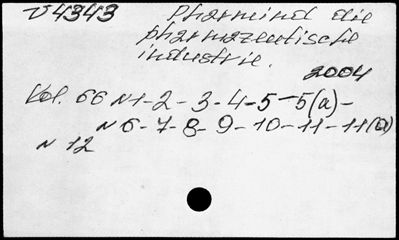 V4343 Pharmind die
pharmazeutische
industrie.
2004
Vol. 66 N1-2-3-4-5-5(a)-
N6-7-8-9-10-11-11(a)
N 12